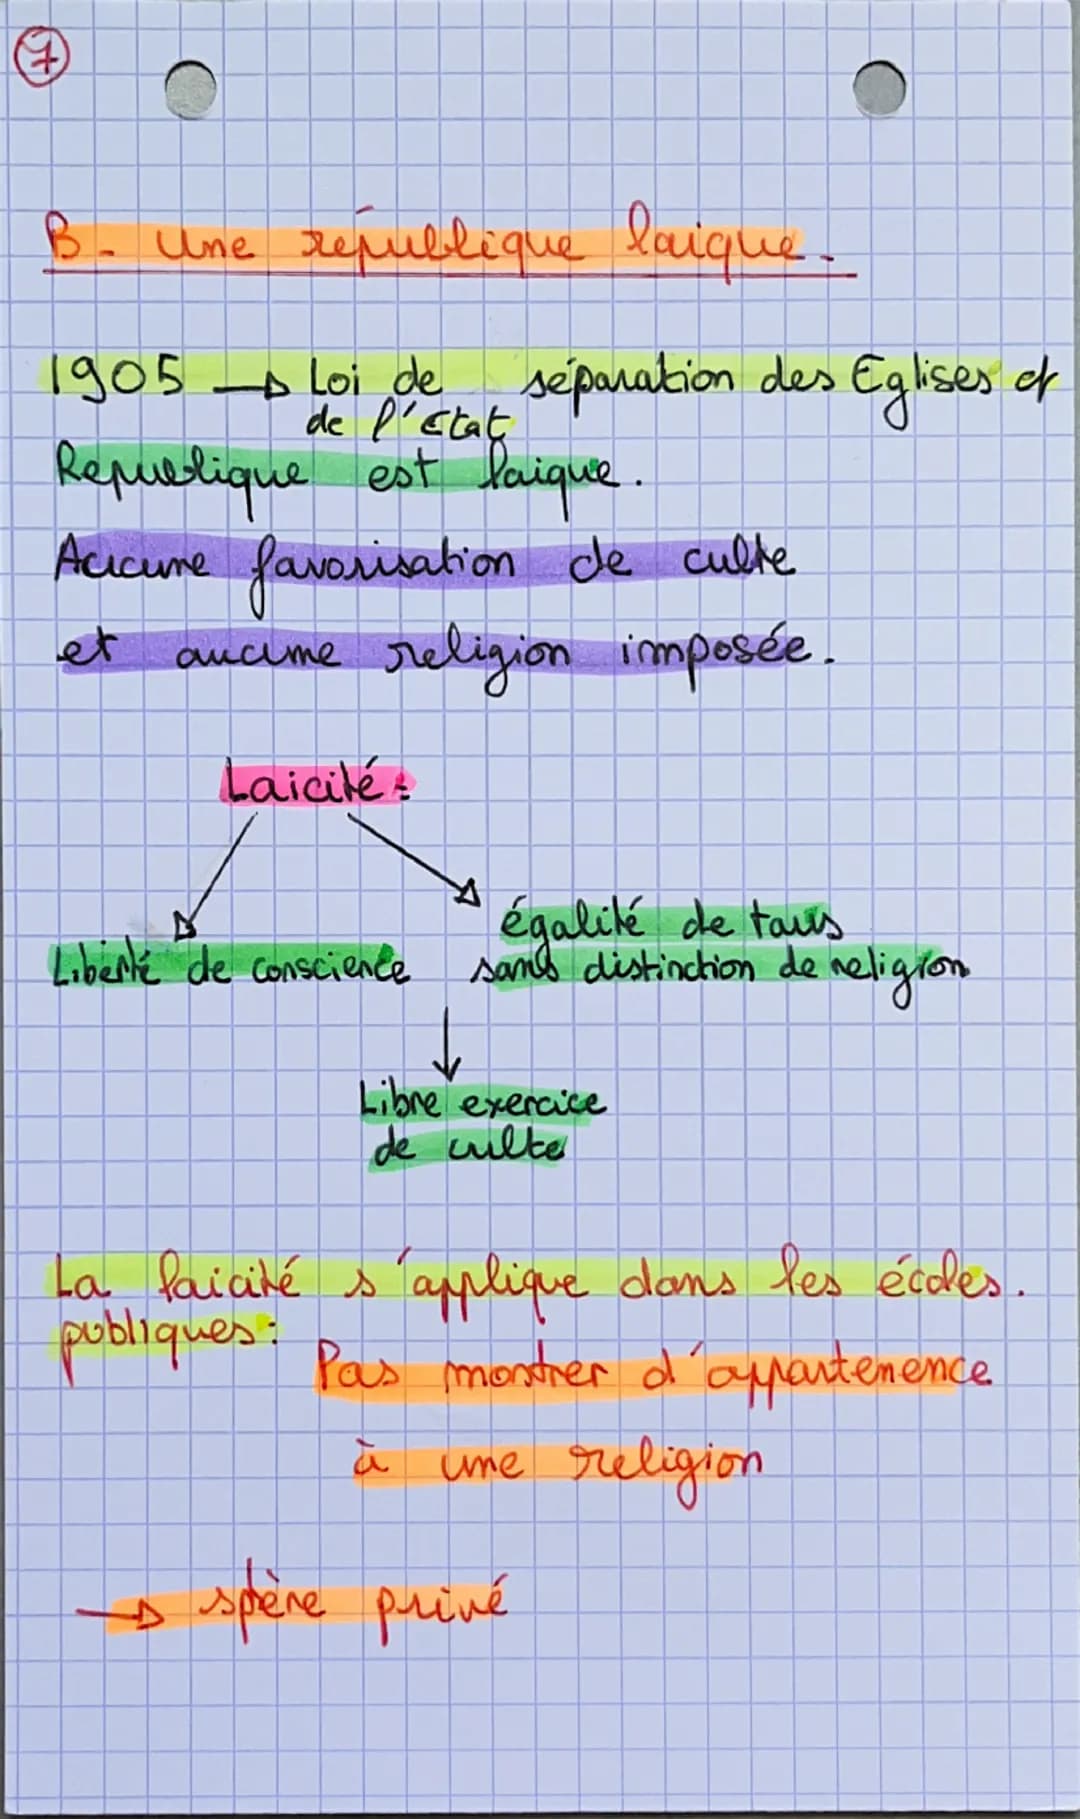 7
B - Une république laique.
1905 → Loi de séparation des Eglises et
de l'Etat
Republique est laique.
Aucune favorisation de culte
et aucune religion imposée.
Laicité :
égalité de tous
Liberté de conscience sans distinction de religion
↓
Libre exercice
de culte
La laicité s'applique dans les écoles.
publiques :
Pas montrer d'appartenence
à une religion
→ sphère privé